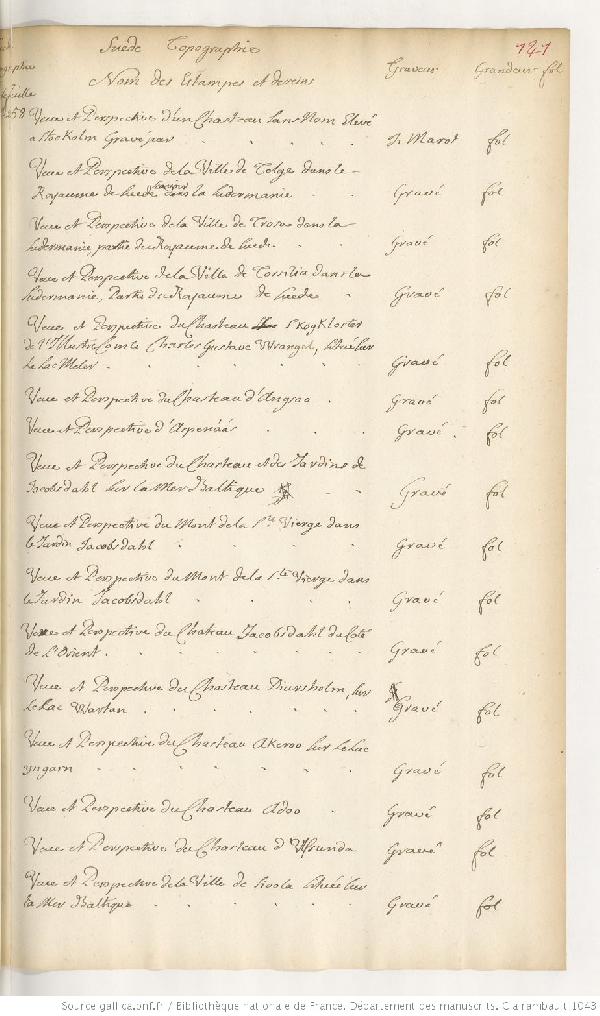 Suede Topographie 121
Nom des Estampes et desseins Graveur Grandeur fol
258
Veue et Perspective d'un Chasteau sans Nom Elevé
a Stokolm Gravé par J. Marot fol
Veue et Perspective de la Ville de Telge dans le
Royaume de Suede dans la Sudermanie Gravé fol
Veue et Perspective de la Ville de Trosa dans la
Sudermanie partie du Royaume de Suede Gravé fol
Veue et Perspective de la Ville de Torsilia dans la
Sudermanie, Partie du Royaume de Suede Gravé fol
Veues et Perspective du Chasteau Skogkloster
de l'Illustre Comte Charles Gustave Wrangel, Situé sur
le Lac Meler Gravé fol
Veue et Perspective du Chasteau d'Angsao Gravé fol
Veue et Perspective d'Arpenäas Gravé fol
Veue et Perspective du Chasteau et des Jardins de
Jacobsdahl sur la Mer Baltique Gravé fol
Veue et Perspective du Mont de la Ste Vierge dans
le Jardin Jacobsdahl Gravé fol
Veue et Perspective du Mont de la Ste Vierge dans
le Jardin Jacobsdahl Gravé fol
Veue et Perspective du Chateau Jacobsdahl du Coté
de L'Orient Gravé fol
Veue et Perspective du Chasteau Diursholm, sur
le Lac Wartan Gravé fol
Veue et Perspective du Chasteau Akeroo sur le Lac
yngarn Gravé fol
Veue et Perspective du Chasteau Adoo Gravé fol
Veue et Perspective du Chasteau d'Wsunda Gravé fol
Veue et Perspective de la Ville de Situéé sur
la Mer Baltique Gravé fol
Source gallica.bnf.fr / Bibliothèque nationale de France. Département des manuscrits. Clairambault 1043